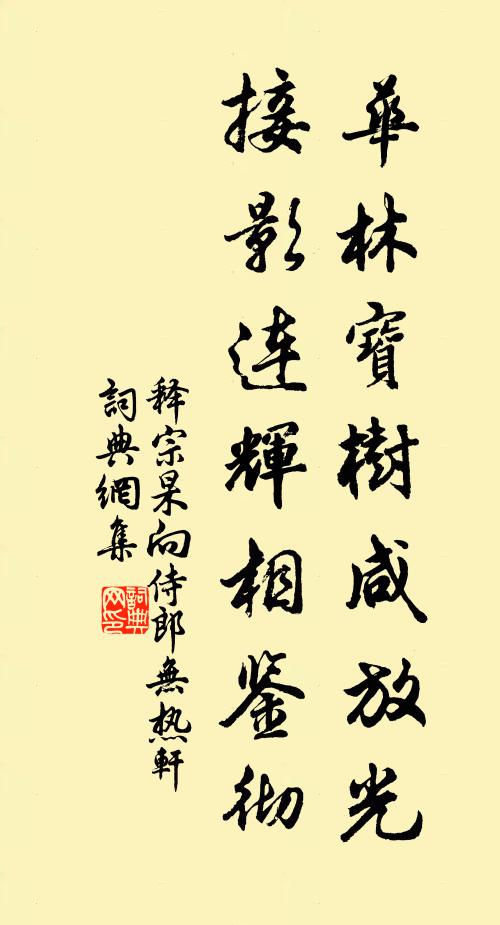 華林寶樹咸放光
接影連輝相鑒彻
释宗杲向侍郎無热軒
詞典網集
詞典网印